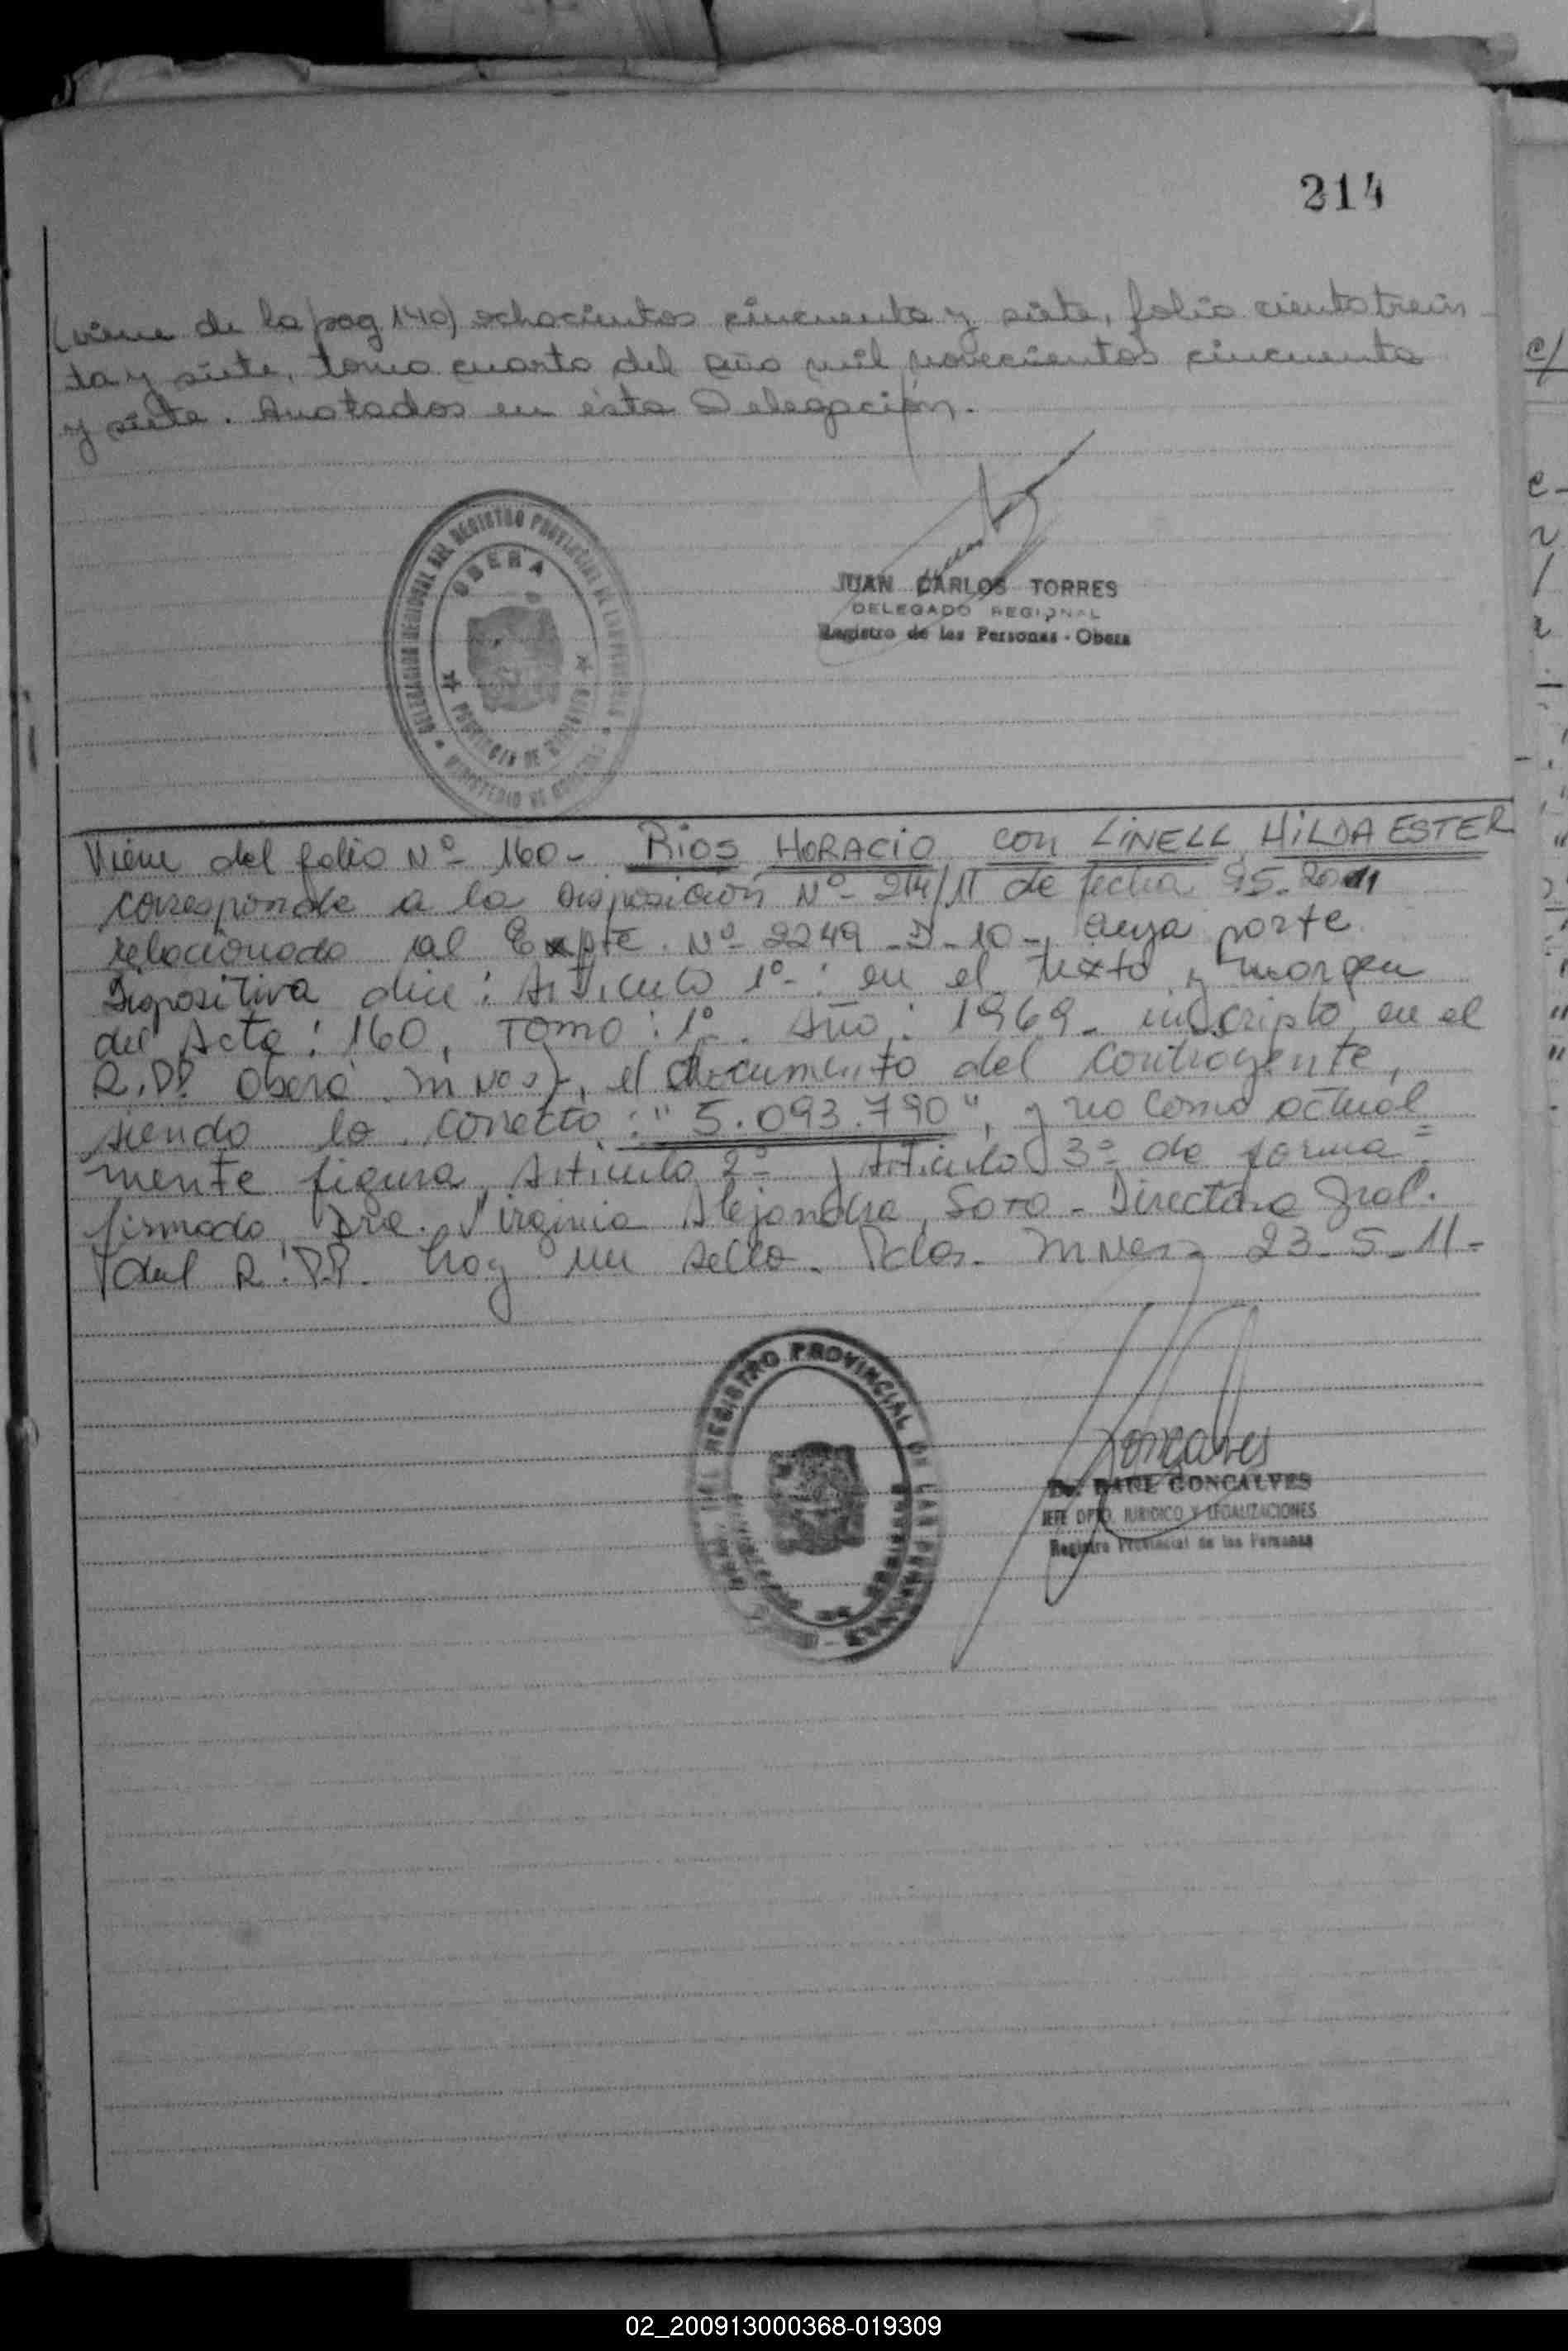 214
(viene de la pag 140) ochocientos cincuenta y siete, folio ciento trein
ta y siete, tomo cuarto del año mil novecientos cincuenta
y siete. Anotados en ésta Delegación.
DELEGACION REGIONAL DEL REGISTRO PROVINCIAL DE LAS PERSONAS
OBERA
PROVINCIA DE MISIONES
MINISTERIO DE GOBIERNO
JUAN CARLOS TORRES
DELEGADO REGIONAL
Registro de las Personas - Obera
Viene del folio Nº 160- RIOS HORACIO con LINELL HILDA ESTER
corresponde a la Disposición Nº- 214/11 de fecha 2011
relacionado al Expte. Nº- 2249-D-10-, cuya parte
Dispositiva dice: Articulo 1º-: en el texto y margen
del Acta: 160, Tomo: 1º. Año: 1969- inscripto en el
R.PP. Oberá Mnes), el documento del contrayente,
siendo lo correcto: "5.093.790", y no como actual=
mente figura, Articulo 2º y Articulo 3º de forma
firmado Dra. Virginia Alejandra Soto - Directora Gral.
del R.PP. hay un sello. Pdas. Mnes, 23-5-11-
REGISTRO PROVINCIAL DE LAS PERSONAS
Goncalves
Dr. RAUL GONCALVES
JEFE DPTO. JURIDICO Y LEGALIZACIONES
Registro Provincial de las Personas
02_200913000368-019309